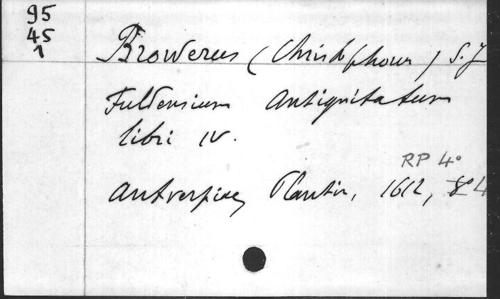 95
45
1
Browerus (Christophorus) S.J
Fuldensium Antiquitatum
libri IV.
RP 4°
Antverpiae, Plantin, 1612, 4